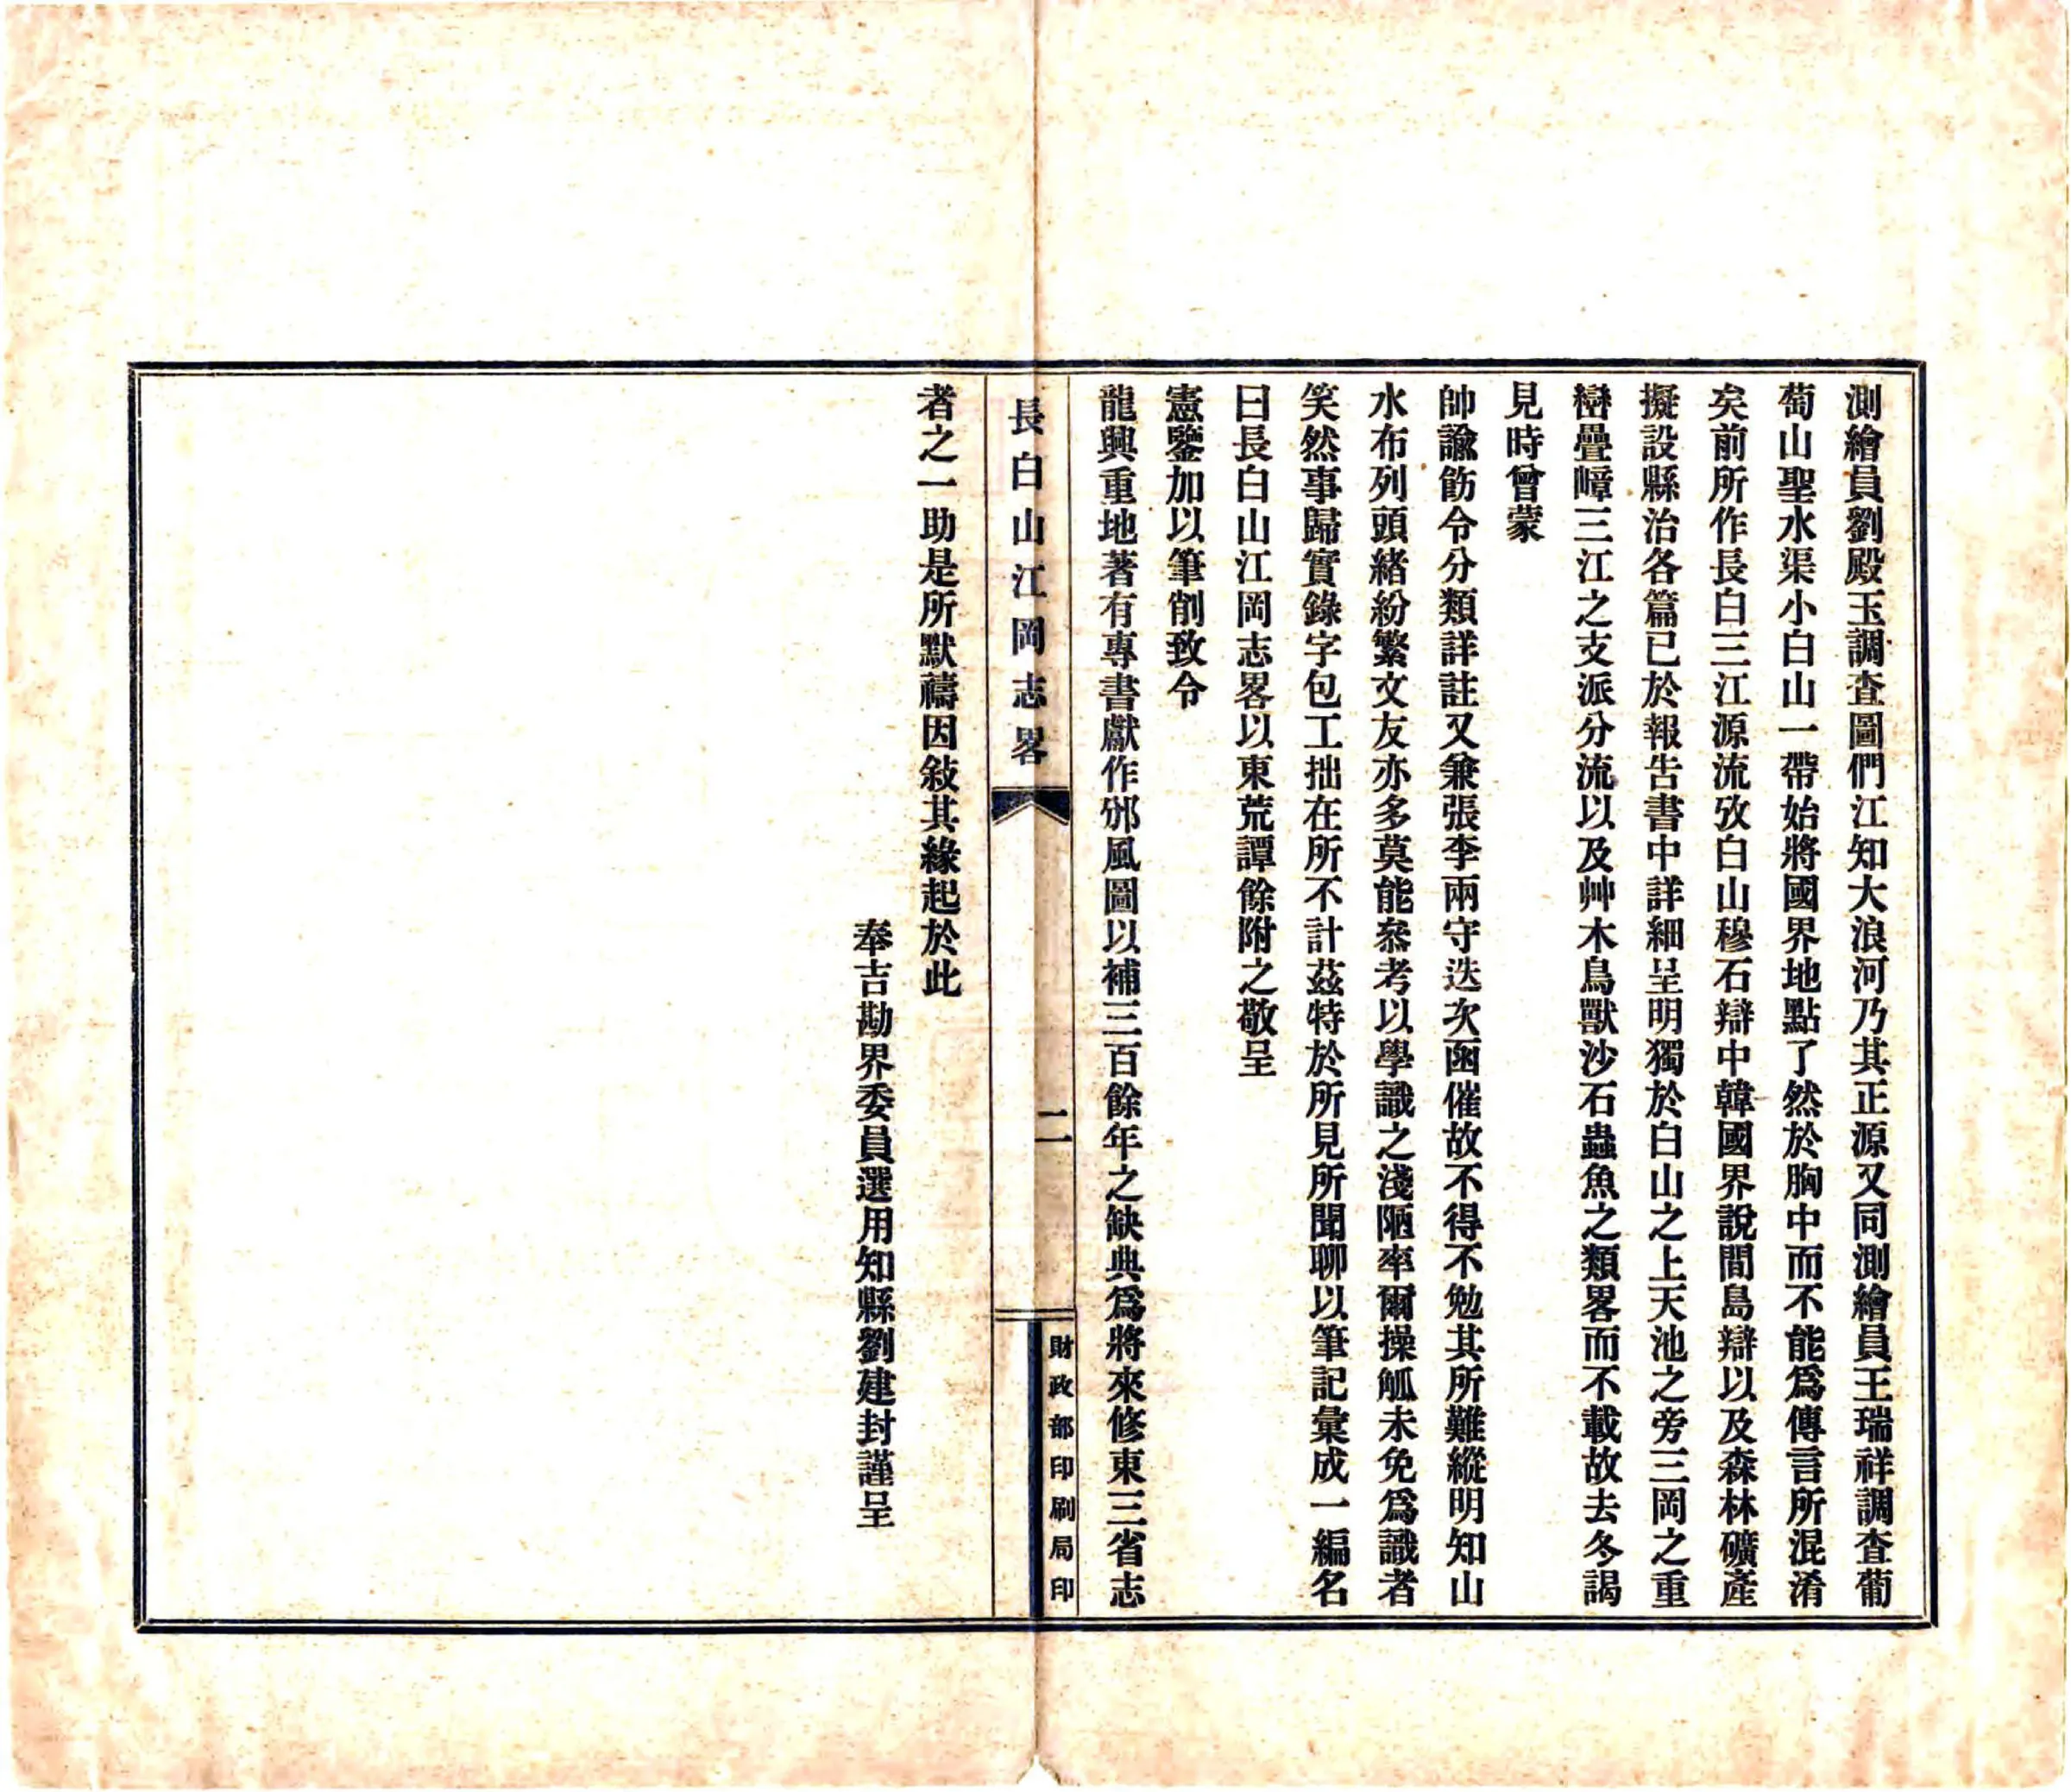 測繪員劉殿玉調查圖們江知大浪河乃其正源又同測繪員王瑞祥調查葡
萄山聖水渠小白山一帶始將國界地點了然於胸中而不能爲傳言所混淆
矣前所作長白三江源流攷白山穆石辯中韓國界說間島辯以及森林礦產
擬設縣治各篇已於報告書中詳細呈明獨於白山之上天池之旁三岡之重
巒疊嶂三江之支派分流以及艸木鳥獸沙石蟲魚之類畧而不載故去冬謁
見時曾蒙
帥諭飭令分類詳註又兼張李兩守迭次函催故不得不勉其所難縱明知山
水布列頭緒紛繁文友亦多莫能叅考以學識之淺陋率爾操觚未免爲識者
笑然事歸實錄字包工拙在所不計茲特於所見所聞聊以筆記彙成一編名
曰長白山江岡志畧以東荒譚餘附之敬呈
憲鑒加以筆削致令
龍興重地著有專書獻作邠風圖以補三百餘年之缺典爲將來修東三省志
長白山江岡志畧
二
財政部印刷局印
者之一助是所默禱因敍其緣起於此
奉吉勘界委員選用知縣劉建封謹呈